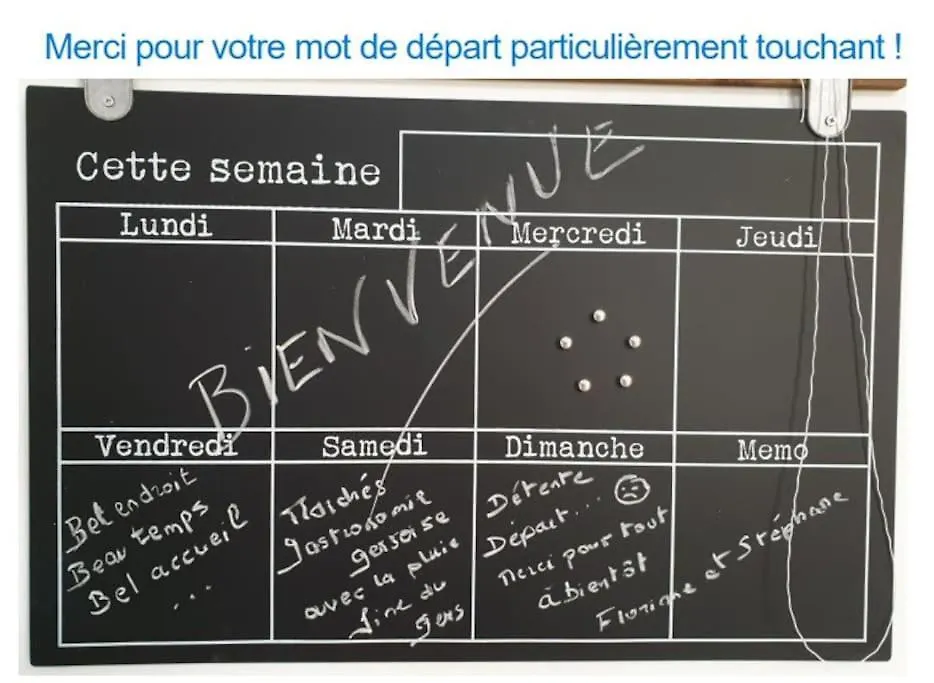 Merci pour votre mot de départ particulièrement touchant !
Cette semaine
BIENVENUE
Lundi
Mardi
Mercredi
Jeudi
Vendredi
Bel endroit
Beau temps
Bel accueil
...
Samedi
Marchés
gastronomie
gersoise
avec la pluie
fine du
gers
Dimanche
Détente
Départ...
Merci pour tout
à bientôt
Memo
Floriane et Stéphane